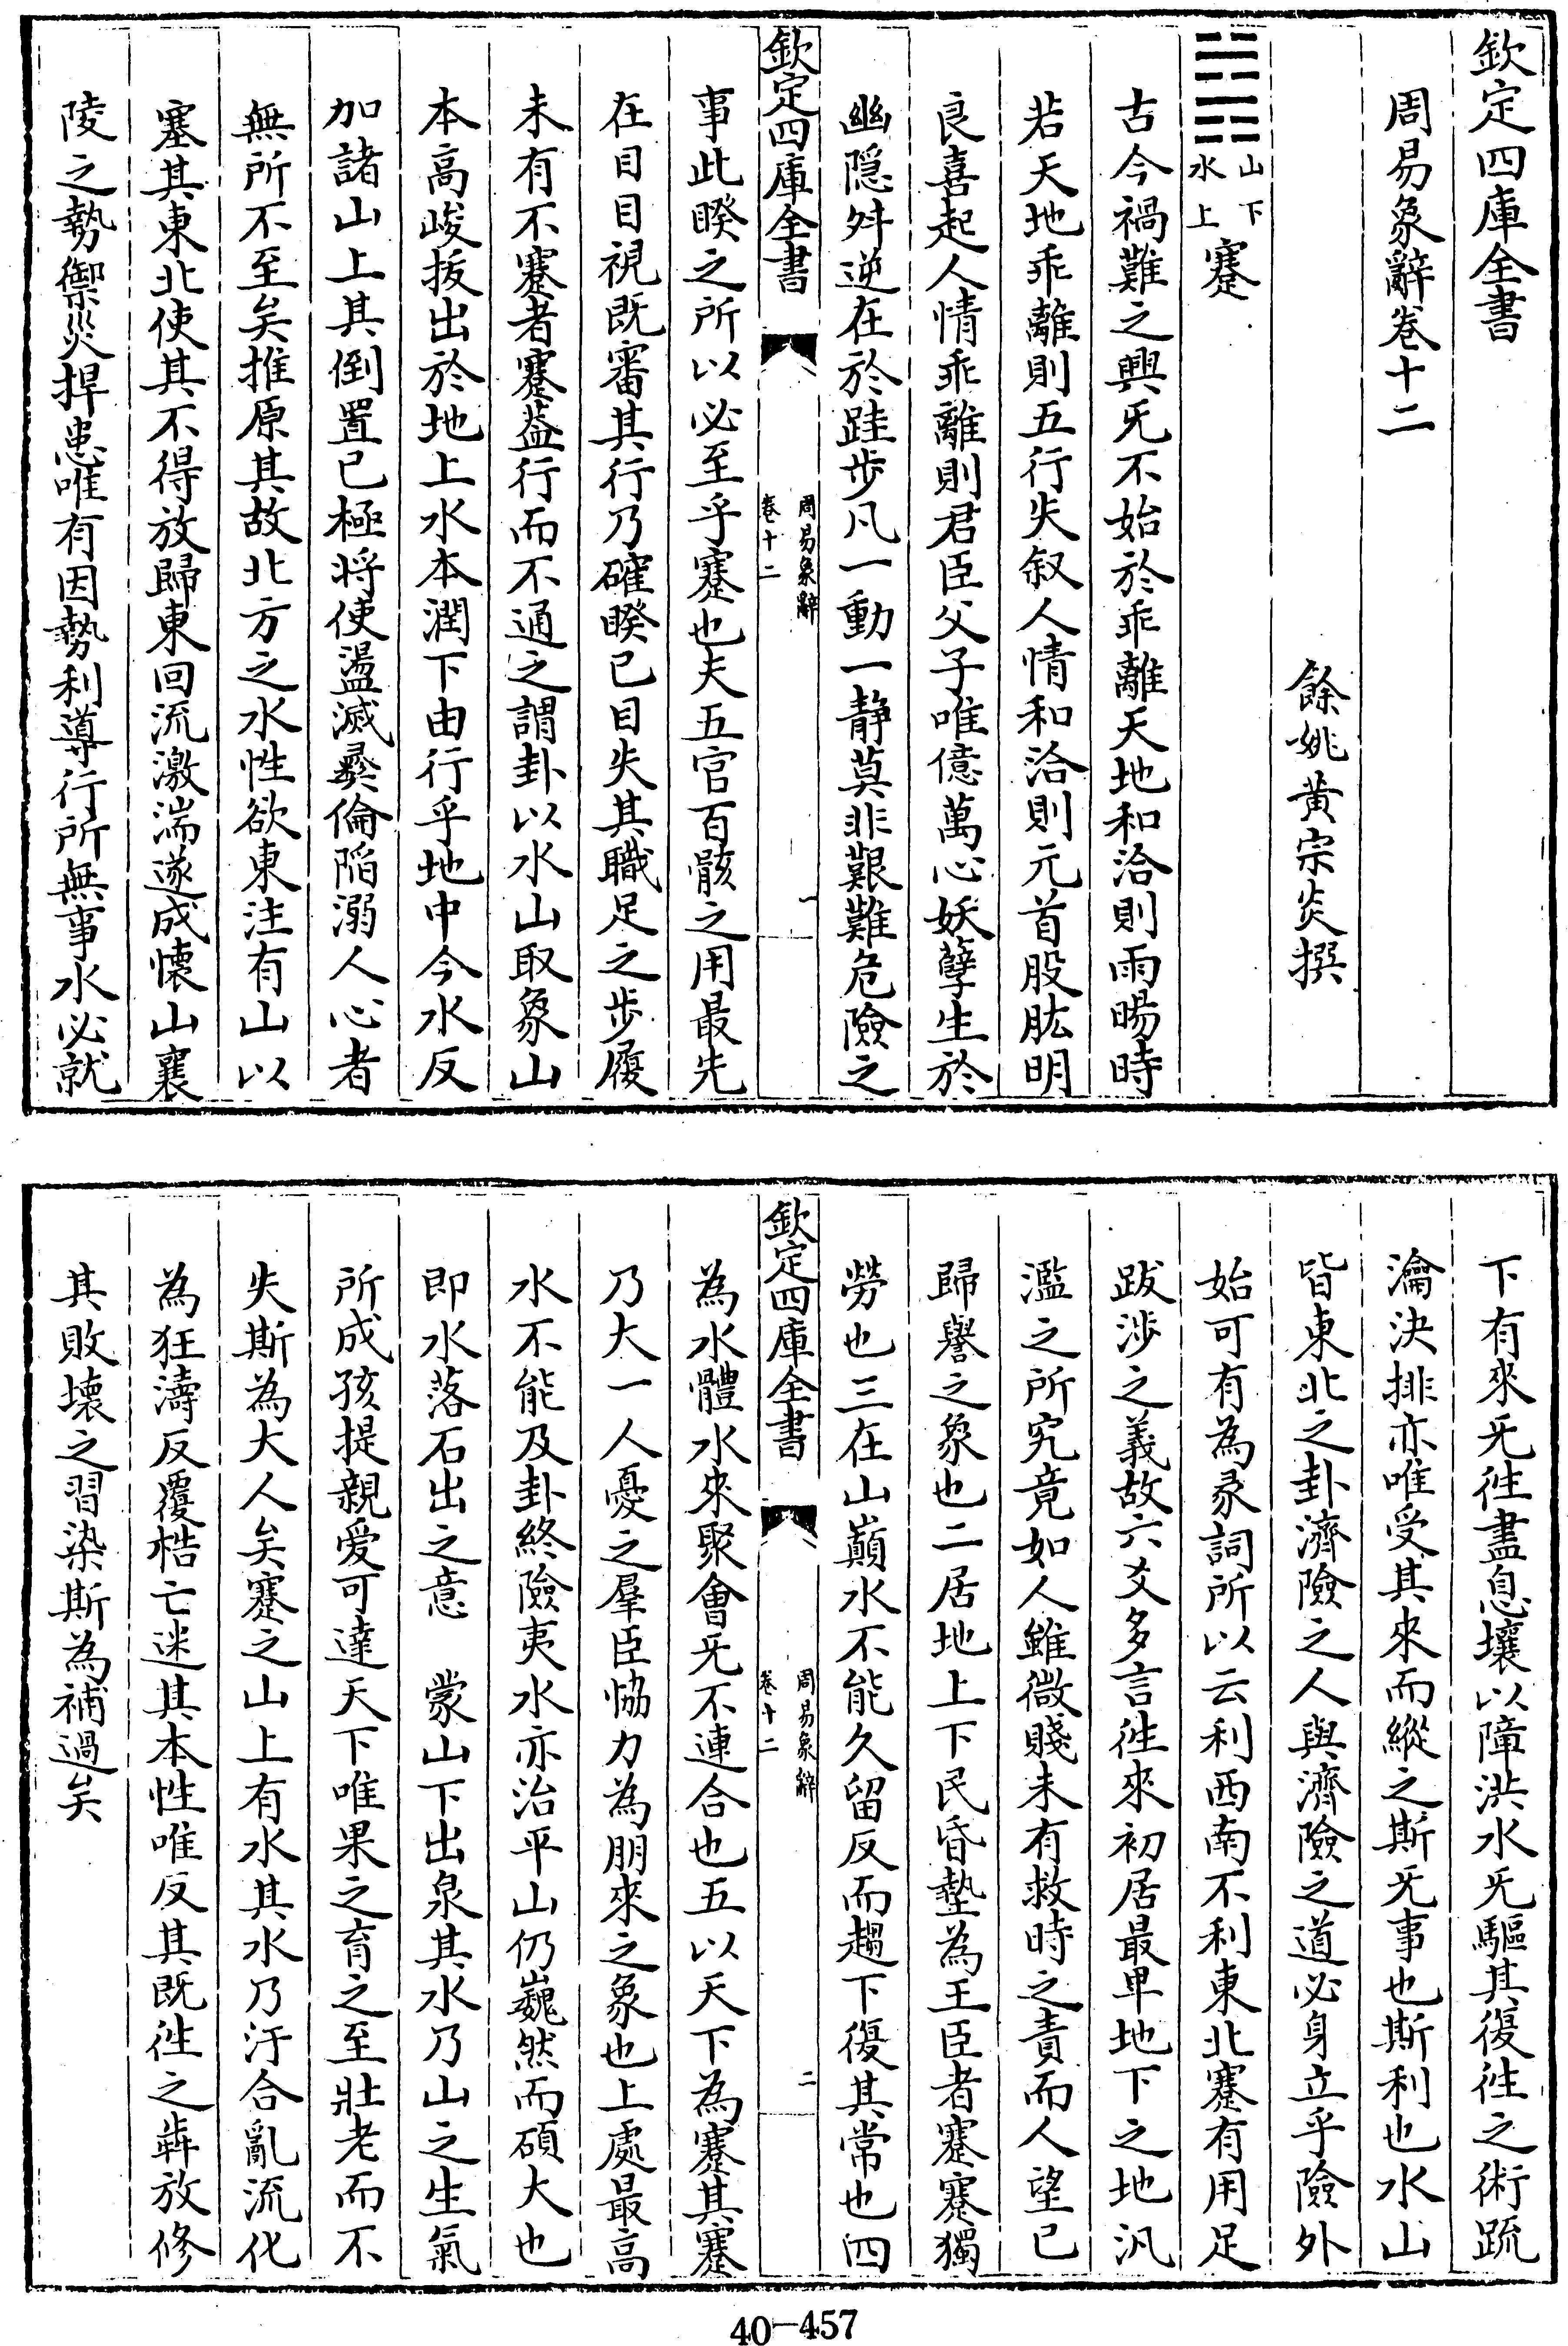 欽定四庫全書
周易象辭卷十二
餘姚黄宗炎撰
山下水上蹇
古今禍難之興旡不始於乖離天地和洽則雨暘時
若天地乖離則五行失叙人情和洽則元首股肱明
良喜起人情乖離則君臣父子唯億萬心妖孽生於
幽隠舛逆在於跬步凡一動一静莫非艱難危險之
欽定四庫全書
周易象辭
卷十二
一
事此睽之所以必至乎蹇也夫五官百骸之用最先
在目目視既審其行乃確睽已目失其職足之步履
未有不蹇者蹇葢行而不通之謂卦以水山取象山
本高峻拔出於地上水本潤下由行乎地中今水反
加諸山上其倒置已極將使盪滅彛倫陷溺人心者
無所不至矣推原其故北方之水性欲東注有山以
塞其東北使其不得放歸東回流激湍遂成懷山襄
陵之勢禦災捍患唯有因勢利導行所無事水必就
下有來旡徃盡息壤以障洪水旡驅其復徃之術疏
瀹決排亦唯受其來而縱之斯旡事也斯利也水山
皆東北之卦濟險之人與濟險之道必身立乎險外
始可有為彖詞所以云利西南不利東北蹇有用足
跋涉之義故六爻多言徃來初居最卑地下之地汎
濫之所究竟如人雖微賤未有救時之責而人望已
歸譽之象也二居地上下民昏墊為王臣者蹇蹇獨
勞也三在山巔水不能久留反而趨下復其常也四
欽定四庫全書
周易象辭
卷十二
二
為水體水來聚會旡不連合也五以天下為蹇其蹇
乃大一人憂之羣臣恊力為朋來之象也上處最高
水不能及卦終險夷水亦治平山仍巍然而碩大也
即水落石出之意　蒙山下出泉其水乃山之生氣
所成孩提親愛可達天下唯果之育之至壯老而不
失斯為大人矣蹇之山上有水其水乃汙合亂流化
為狂濤反覆梏亡迷其本性唯反其既徃之犇放修
其敗壞之習染斯為補過矣
40-457